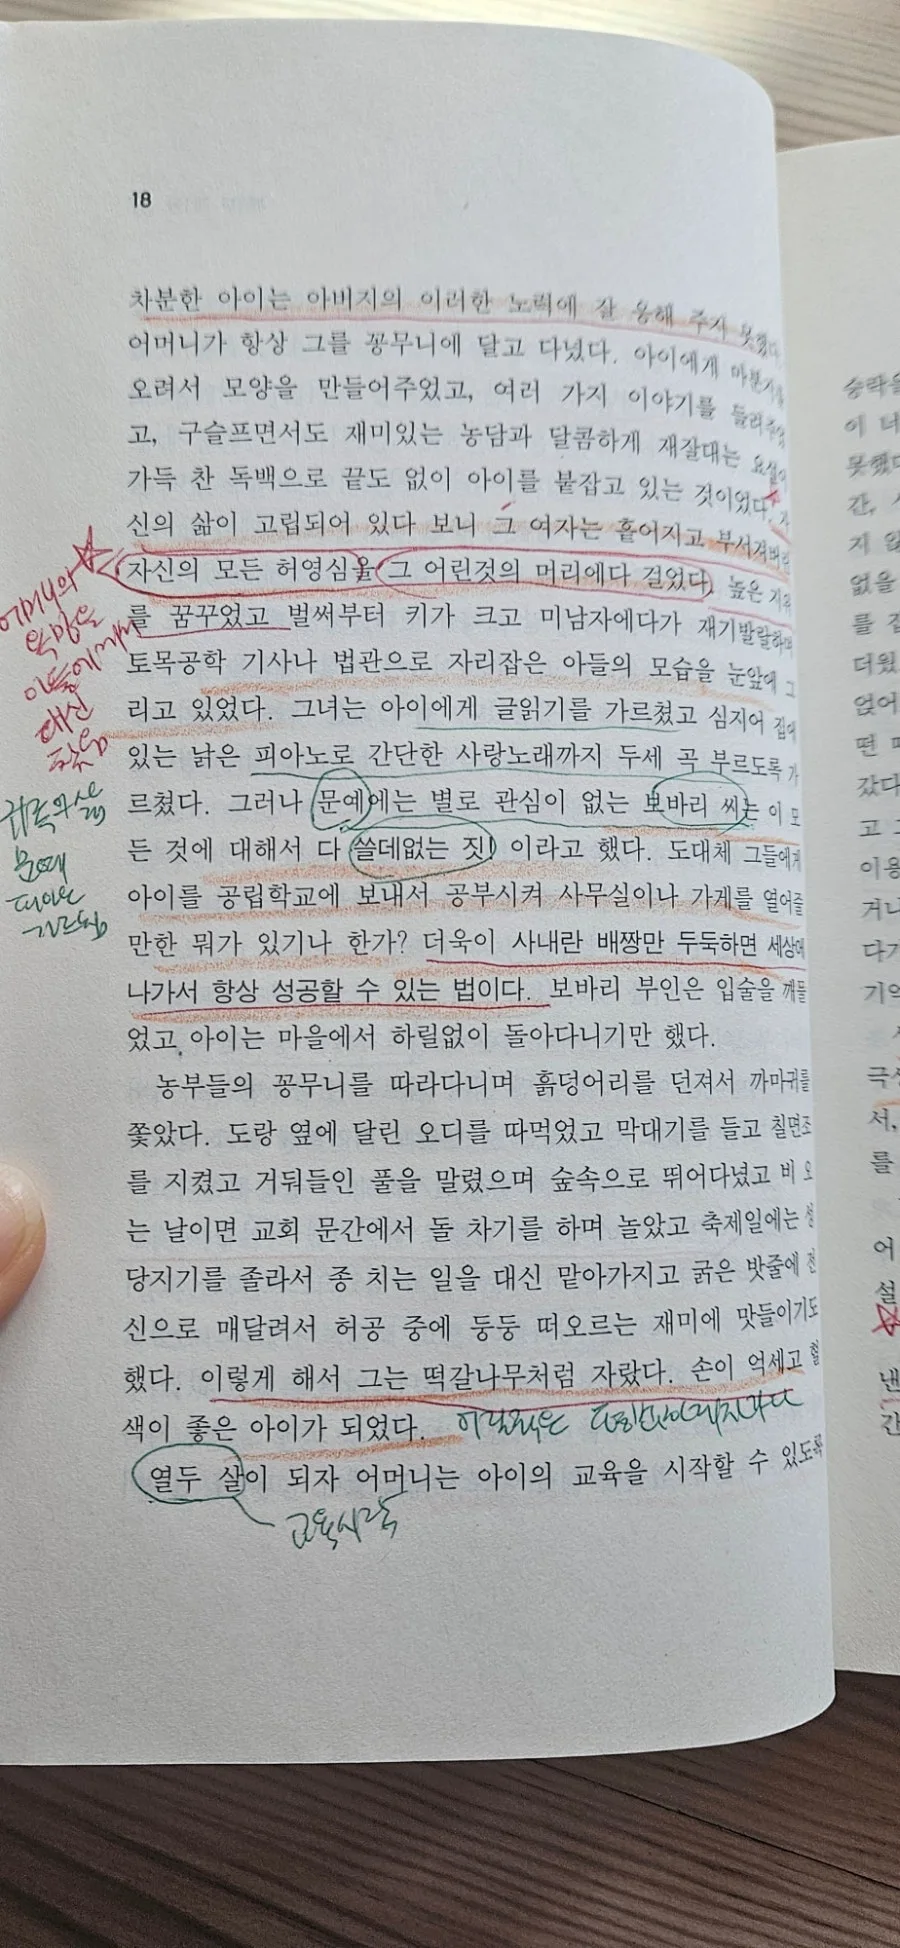 18
차분한 아이는 아버지의 이러한 노력에 잘 응해 주지 못했다
어머니가 항상 그를 꽁무니에 달고 다녔다. 아이에게 마분지를
오려서 모양을 만들어주었고, 여러 가지 이야기를 들려주었
고, 구슬프면서도 재미있는 농담과 달콤하게 재잘대는 요설이
가득 찬 독백으로 끝도 없이 아이를 붙잡고 있는 것이었다. 자
신의 삶이 고립되어 있다 보니 그 여자는 흩어지고 부서져버린
자신의 모든 허영심을 그 어린것의 머리에다 걸었다. 높은 지위
를 꿈꾸었고 벌써부터 키가 크고 미남자에다가 재기발랄하며
토목공학 기사나 법관으로 자리잡은 아들의 모습을 눈앞에 그
리고 있었다. 그녀는 아이에게 글읽기를 가르쳤고 심지어 집에
있는 낡은 피아노로 간단한 사랑노래까지 두세 곡 부르도록 가
르쳤다. 그러나 문예에는 별로 관심이 없는 보바리 씨는 이 모
든 것에 대해서 다 쓸데없는 짓이라고 했다. 도대체 그들에게
아이를 공립학교에 보내서 공부시켜 사무실이나 가게를 열어줄
만한 뭐가 있기나 한가? 더욱이 사내란 배짱만 두둑하면 세상에
나가서 항상 성공할 수 있는 법이다. 보바리 부인은 입술을 깨물
었고, 아이는 마을에서 하릴없이 돌아다니기만 했다.
농부들의 꽁무니를 따라다니며 흙덩어리를 던져서 까마귀를
쫓았다. 도랑 옆에 달린 오디를 따먹었고 막대기를 들고 칠면조
를 지켰고 거둬들인 풀을 말렸으며 숲속으로 뛰어다녔고 비 오
는 날이면 교회 문간에서 돌 차기를 하며 놀았고 축제일에는 성
당지기를 졸라서 종 치는 일을 대신 맡아가지고 굵은 밧줄에 전
신으로 매달려서 허공 중에 둥둥 떠오르는 재미에 맛들이기도
했다. 이렇게 해서 그는 떡갈나무처럼 자랐다. 손이 억세고 혈
색이 좋은 아이가 되었다.
열두 살이 되자 어머니는 아이의 교육을 시작할 수 있도록
교육시작
어머니의
욕망을
아들에게서
대신
찾음
귀족의 삶